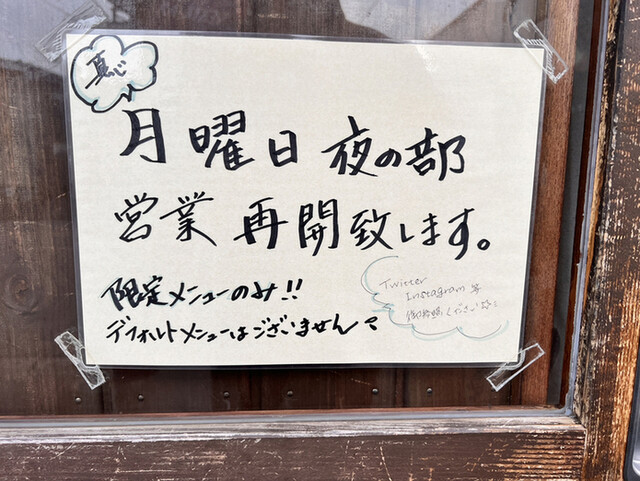 月曜日 夜の部
営業 再開致します。
限定メニューのみ!!
デフォルトメニューはございません
Twitter
Instagram 等
御参照ください